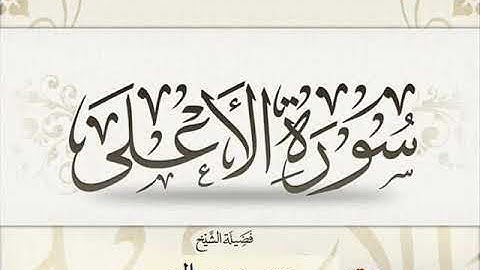 سُورَةُ الأَعْلَىٰ
فَضِيلَة الشَّيْخ